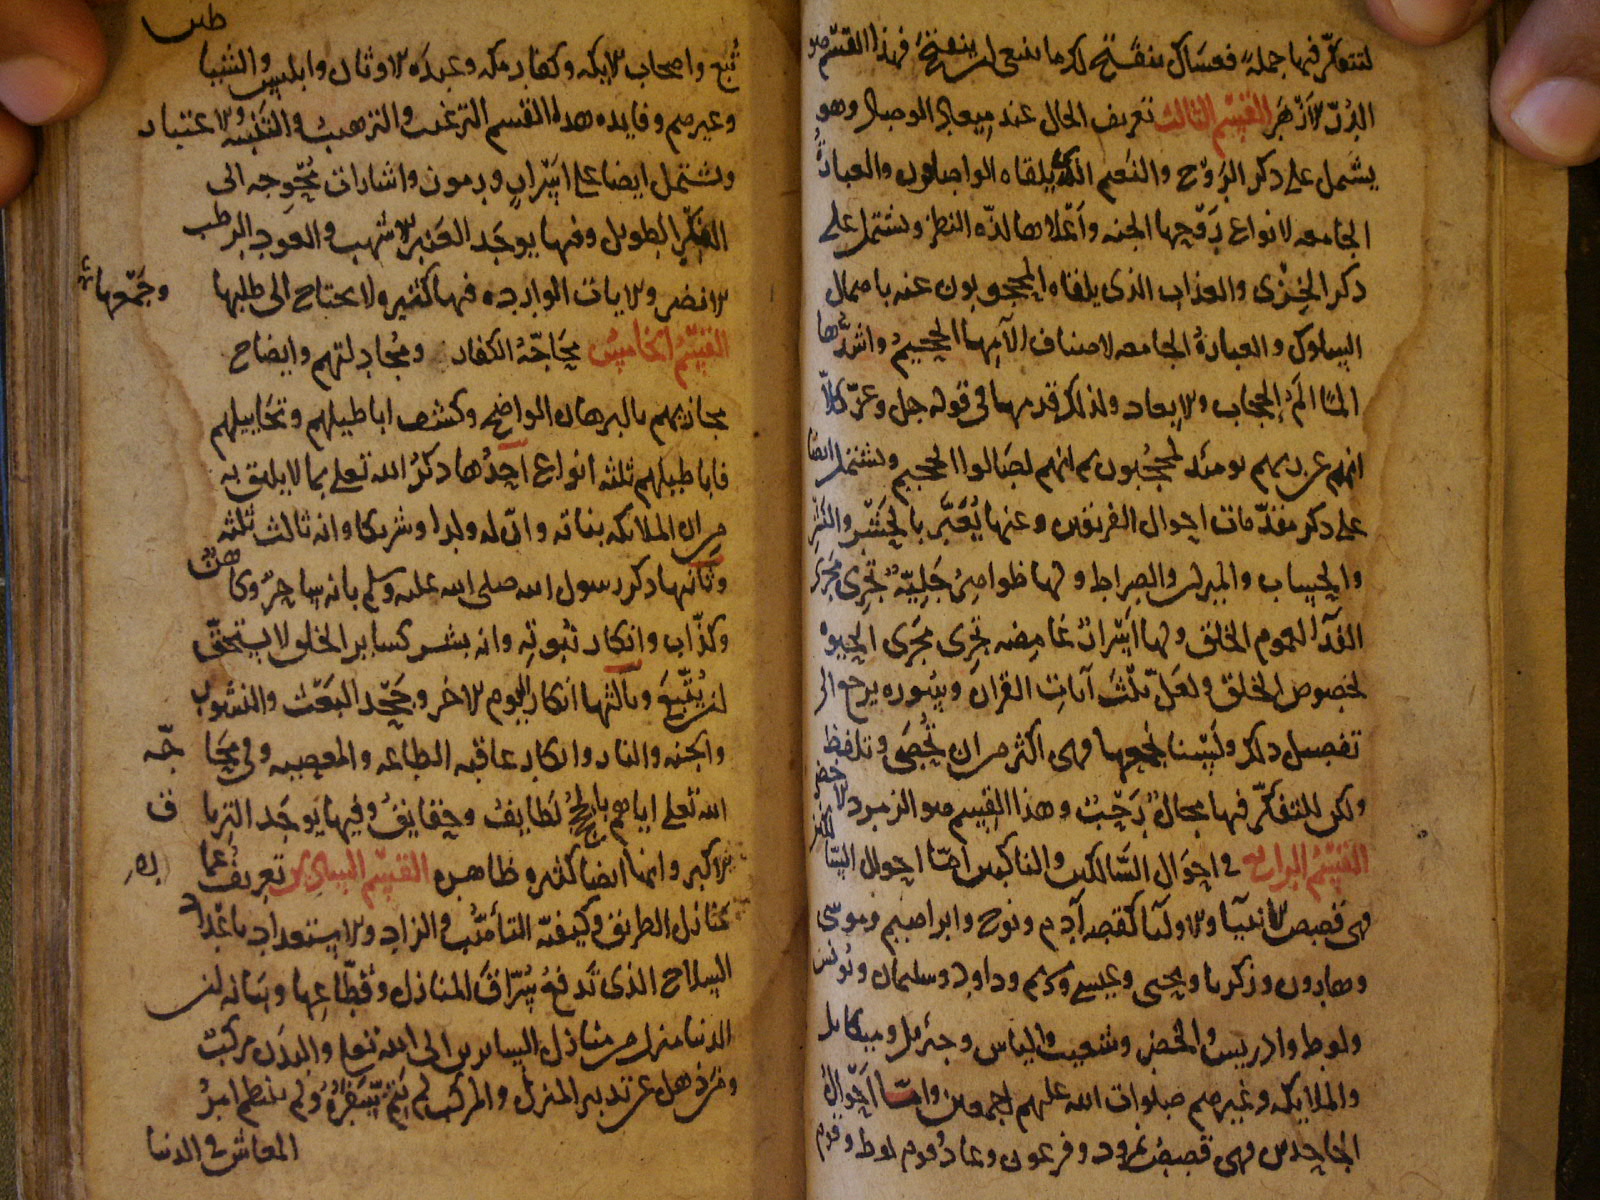 لتتفكر فيها جملة فعساك ينفتح لك ما ينبغي ان ينفتح فهذا القسم هو
الدر الازهر القسم الثالث تعريف الحال عند ميعاد الوصال وهو
يشمل على ذكر الروح والنعيم الذي يلقاه الواصلون والعبارة
الجامعه لانواع روحها الجنه واعلاها لذة النظر ويشتمل على
ذكر الخزى والعذاب الذي يلقاه المحجوبون عنه باهمال
السلوك والعبارة الجامعه لاصناف الامها الجحيم واشدها
الما الم الحجاب والابعاد ولذلك قدمها في قوله جل وعز كلا
انهم عن ربهم يومئذ لمحجوبون ثم انهم لصالوا الجحيم ويشتمل ايضا
على ذكر مقدمات احوال الفريقين وعنها يعبر بالحشر والنشر
والحساب والميزان والصراط ولها ظواهر جلية تجرى مجرى
الغذا لعموم الخلق ولها اسرار غامضه تجرى مجرى الحيوه
لخصوص الخلق ولعل ثلث آيات القرآن وسوره يرجع الى
تفصيل ذلك ولسنا نجمعها فهى اكثر من ان تحصى وتلفظ
ولكن للتفكر فيها مجال رحب وهذا القسم هو الزمرد الاخضر
القسم الرابع في احوال السالكين والناكبين اما احوال السا
فهى قصص الانبيا والاوليا كقصه آدم ونوح وابراهيم وموسى
وهارون وزكريا ويحيى وعيسى ومريم وداود وسليمان ويونس
ولوط وادريس والخضر وشعيب والياس وجبريل وميكايل
والملايكه وغيرهم صلوات الله عليهم اجمعين واما احوال
الجاحدين فهى قصص نمرود وفرعون وعاد وقوم لوط وقوم
تبع واصحاب الايكه وكفار مكه وعبده الاوثان وابليس والشيا
طين
وغيرهم وفايده هذا القسم الترغيب والترهيب والتنبيه والاعتبار
ويشتمل ايضا على اسرار ورموز واشارات محوجه الى
الفكر الطويل وفيها يوجد العنبر الاشهب والعود الرطب
الانضر والايات الوارده فيها كثيره ولا يحتاج الى طلبها وجمعها
القسم الخامس محاجة الكفار ومجادلتهم وايضاح
مخازيهم بالبرهان الواضح وكشف اباطيلهم وتخاييلهم
فاباطيلهم ثلثه انواع احدها ذكر الله تعلى بما لا يليق به
من ان الملايكه بناته وان له ولدا وشريكا وانه ثالث ثلثه
وثانيها ذكر رسول الله صلى الله عليه وسلم بانه ساحر وكاهن
وكذاب وانكار نبوته وانه بشر كساير الخلق لا يستحق
ان يتبع وثالثها انكار اليوم الاخر وجحد البعث والنشور
والجنه والنار وانكار عاقبه الطاعه والمعصيه وفي محاجه
الله تعلى اياهم بالحجج لطايف وحقايق وفيها يوجد الترياق
الاكبر وآياتها ايضا كثيره ظاهره القسم السادس تعريف عماره
منازل الطريق وكيفية التأهب والزاد والاستعداد باعداد
السلاح الذي تدفع سراق المنازل وقطاعها وبيانه ان
الدنيا منزل من منازل السايرين الى الله تعلى والبدن مركب
ومن ذهل عن تدبير المنزل والمركب لم يتم سفره ولم ينتظم امر
المعاش في الدنيا